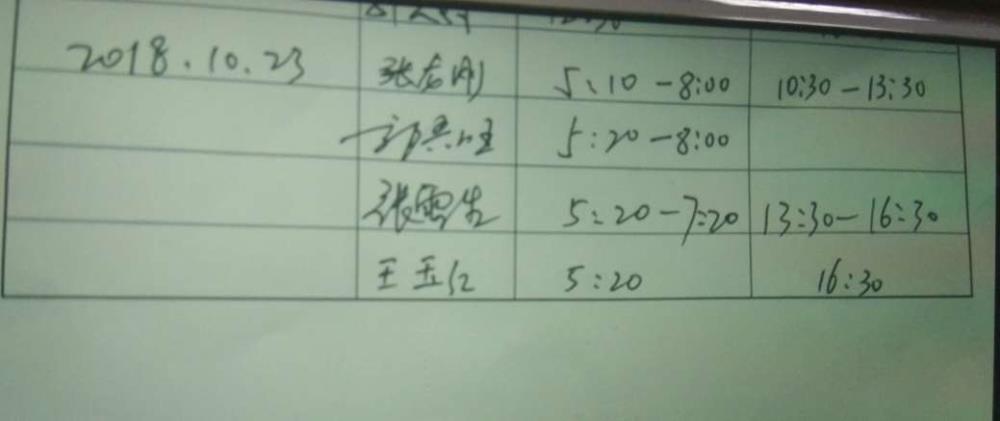 2018.10.23 张志刚 5:10-8:00 10:30-13:30
5:20-8:00
张雪生 5:20-7:20 13:30-16:30
王玉红 5:20 16:30